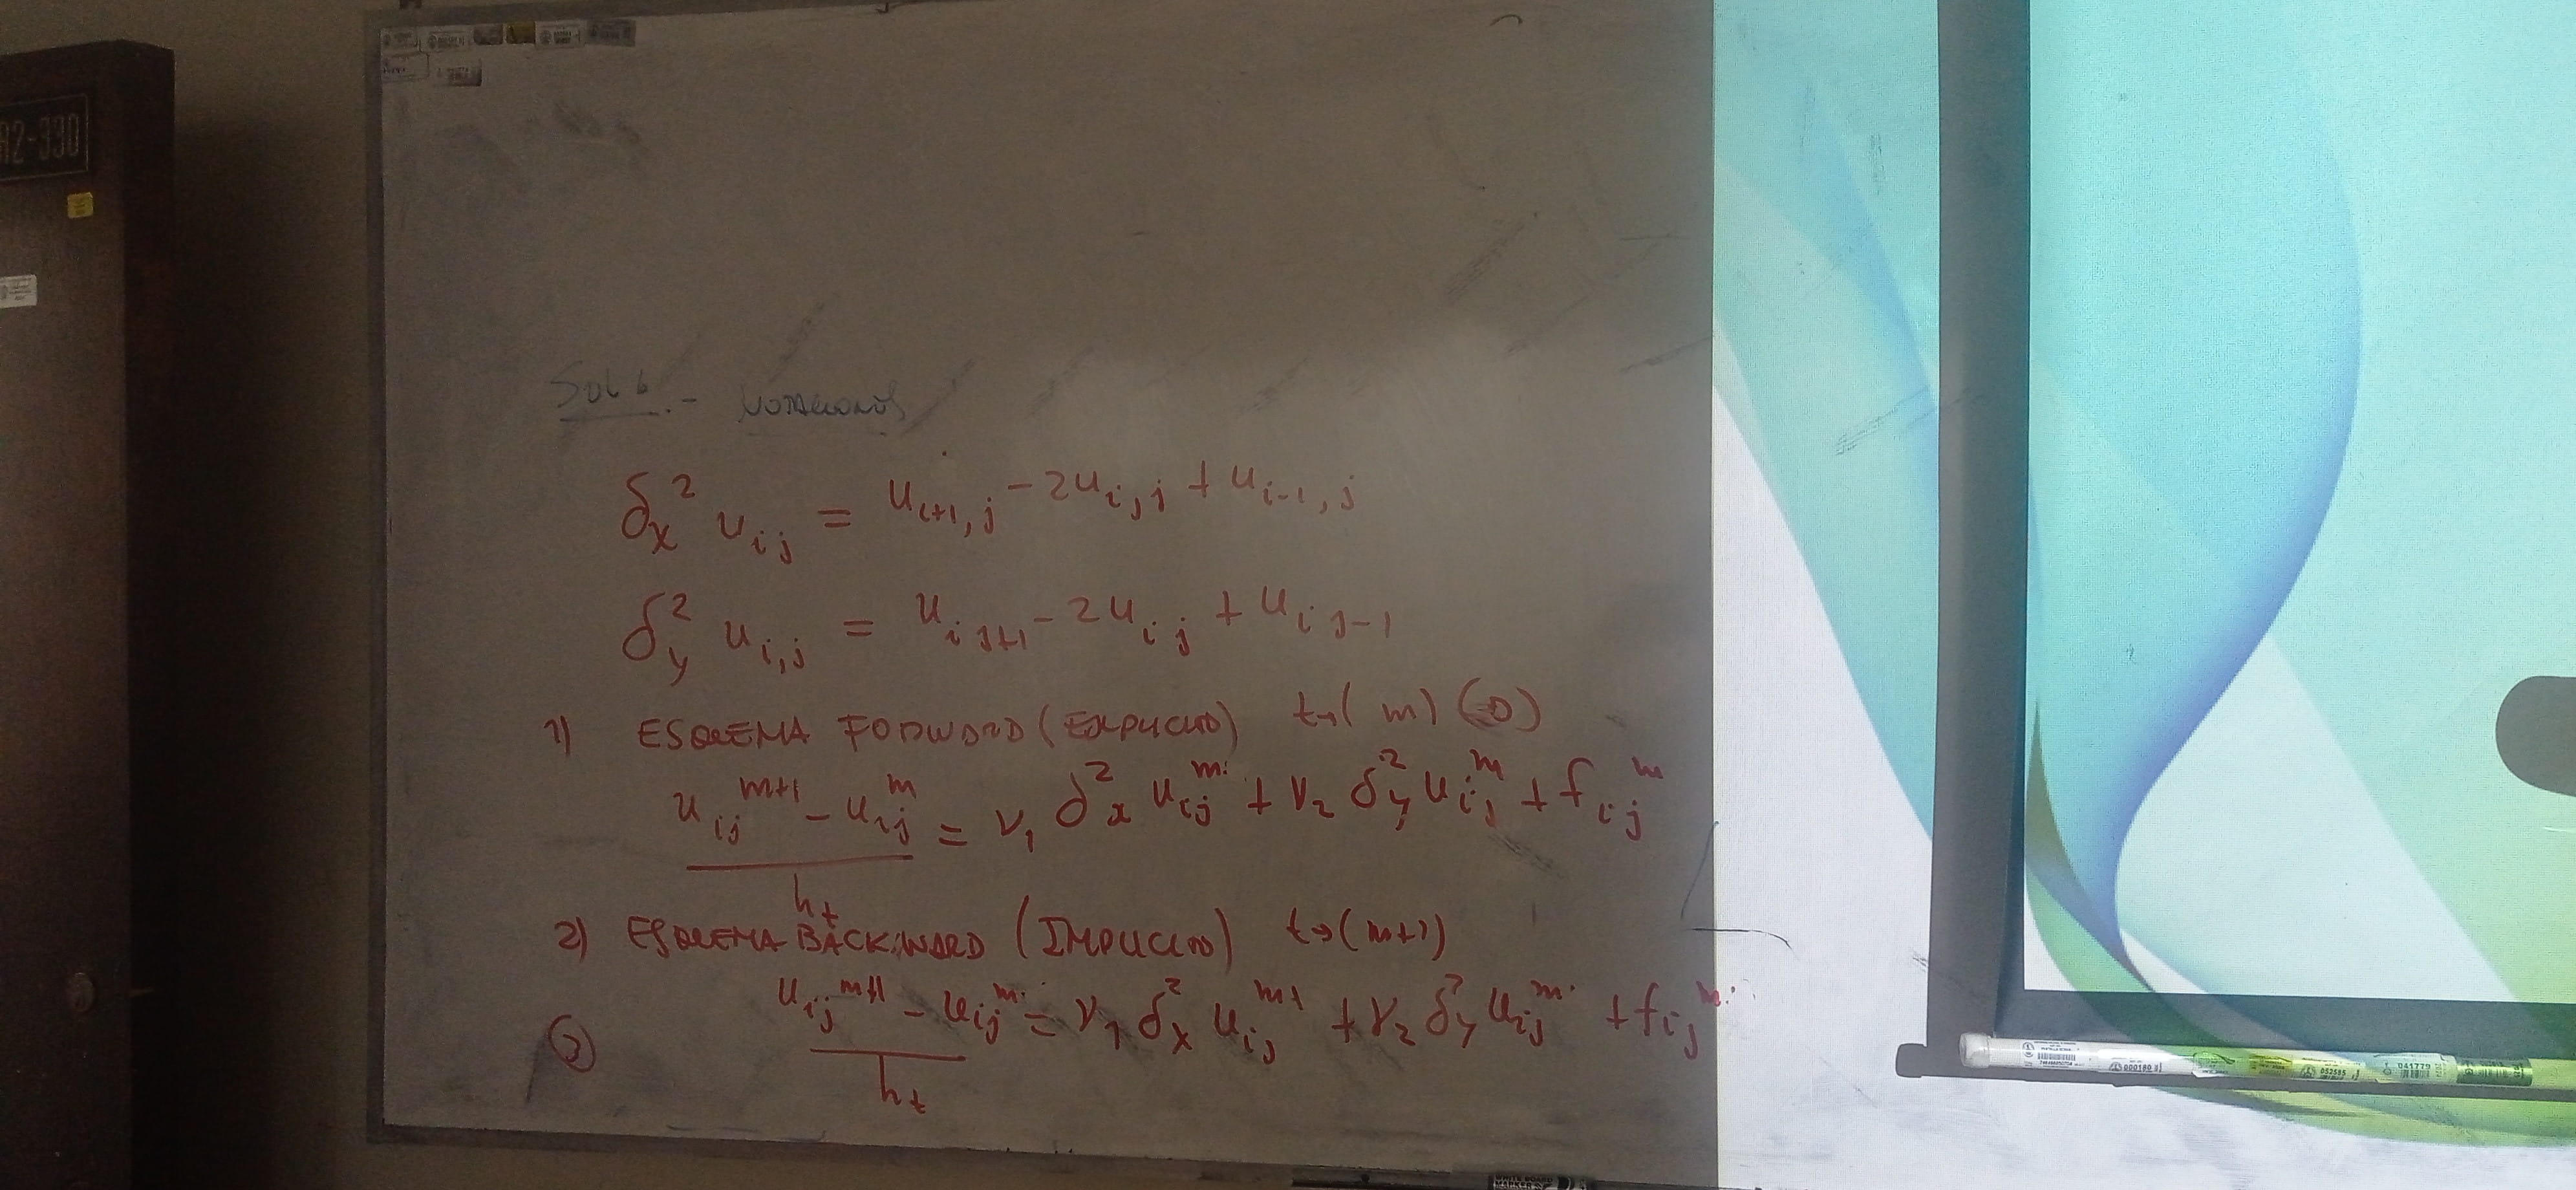 R2-330
SOL 6.- NOTACIONES
δ_x^2 u_{ij} = u_{i+1,j} - 2u_{i,j} + u_{i-1,j}
δ_y^2 u_{i,j} = u_{i j+1} - 2u_{ij} + u_{i j-1}
1) ESQUEMA FORWARD (EXPLICITO) t→(m) (0)
(u_{ij}^{m+1} - u_{ij}^m)/h_t = ν_1 δ_x^2 u_{ij}^m + ν_2 δ_y^2 u_{ij}^m + f_{ij}^m
2) ESQUEMA BACKWARD (IMPLICITO) t→(m+1)
(u_{ij}^{m+1} - u_{ij}^m)/h_t = ν_1 δ_x^2 u_{ij}^{m+1} + ν_2 δ_y^2 u_{ij}^m + f_{ij}^m
000180
052585
041779
WHITE BOARD
MARKER